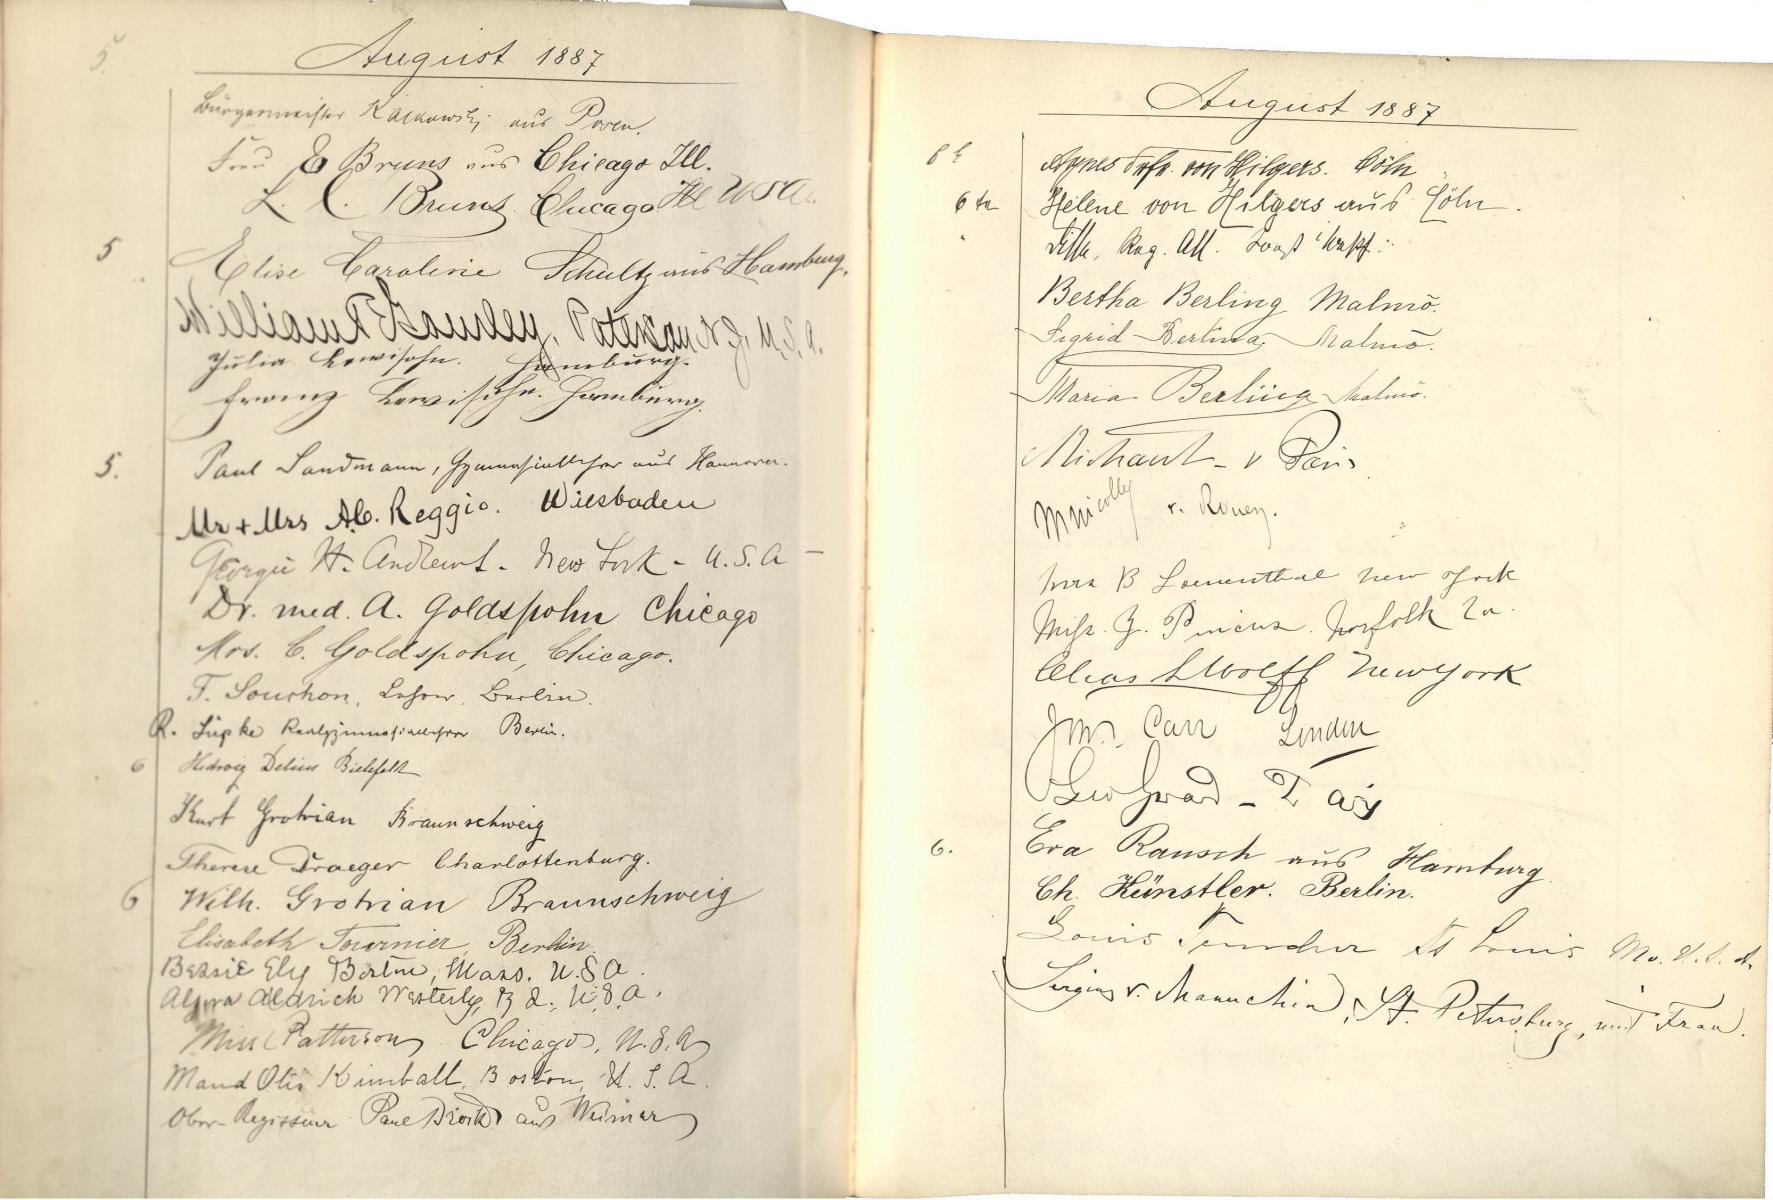 5.
August 1887
Bürgermeister Kalkowski aus Posen.
Frau E Bruns aus Chicago Ill.
L. C. Bruns. Chicago Ill USA.
5 Elise Caroline Schultz aus Hamburg.
William R Gourley, Paterson N.J. U.S.A.
Julia Lewisohn. Hamburg.
Franz Lewisohn. Hamburg.
5. Paul Sandmann, Gymnasiallehrer aus Hannover.
Mr + Mrs A.C. Reggio. Wiesbaden
George H. Andrews - New York - U.S.A -
Dr. med. A. Goldspohn Chicago
Mrs. C. Goldspohn, Chicago.
F. Souchon, Lehrer, Berlin.
R. Lüpke Realgymnasiallehrer Berlin.
6 Hedwig Delius Bielefeldt
Kurt Grotrian Braunschweig
Therese Draeger Charlottenburg.
6 Wilh. Grotrian Braunschweig
Elisabeth Tournier, Berlin.
Bessie Ely Boston, Mass. U.S.A.
Aldrich Westerly, R.I., U.S.A.
Miss Patterson Chicago, U.S.A
Maud Otis Kimball, Boston, U.S.A.
Ober-Regisseur Paul Brock aus Weimar
August 1887
Agnes von Hilgers. Cöln
6 Helene von Hilgers aus Cöln.
Bertha Berling Malmö.
Sigrid Berling Malmö.
Maria Berling Malmö.
Michault - v Paris
v. Rouen.
Mrs B Loewenthal New York
Miss. Z. Pincus. Norfolk Va.
Elias L Wolff New York
Jms. Carr London
6. Eva Rausch aus Hamburg.
Ch. Künstler. Berlin.
Louis St Louis Mo. U.S.A.
Sergius v. Manuchin, St. Petersburg, mit Frau.